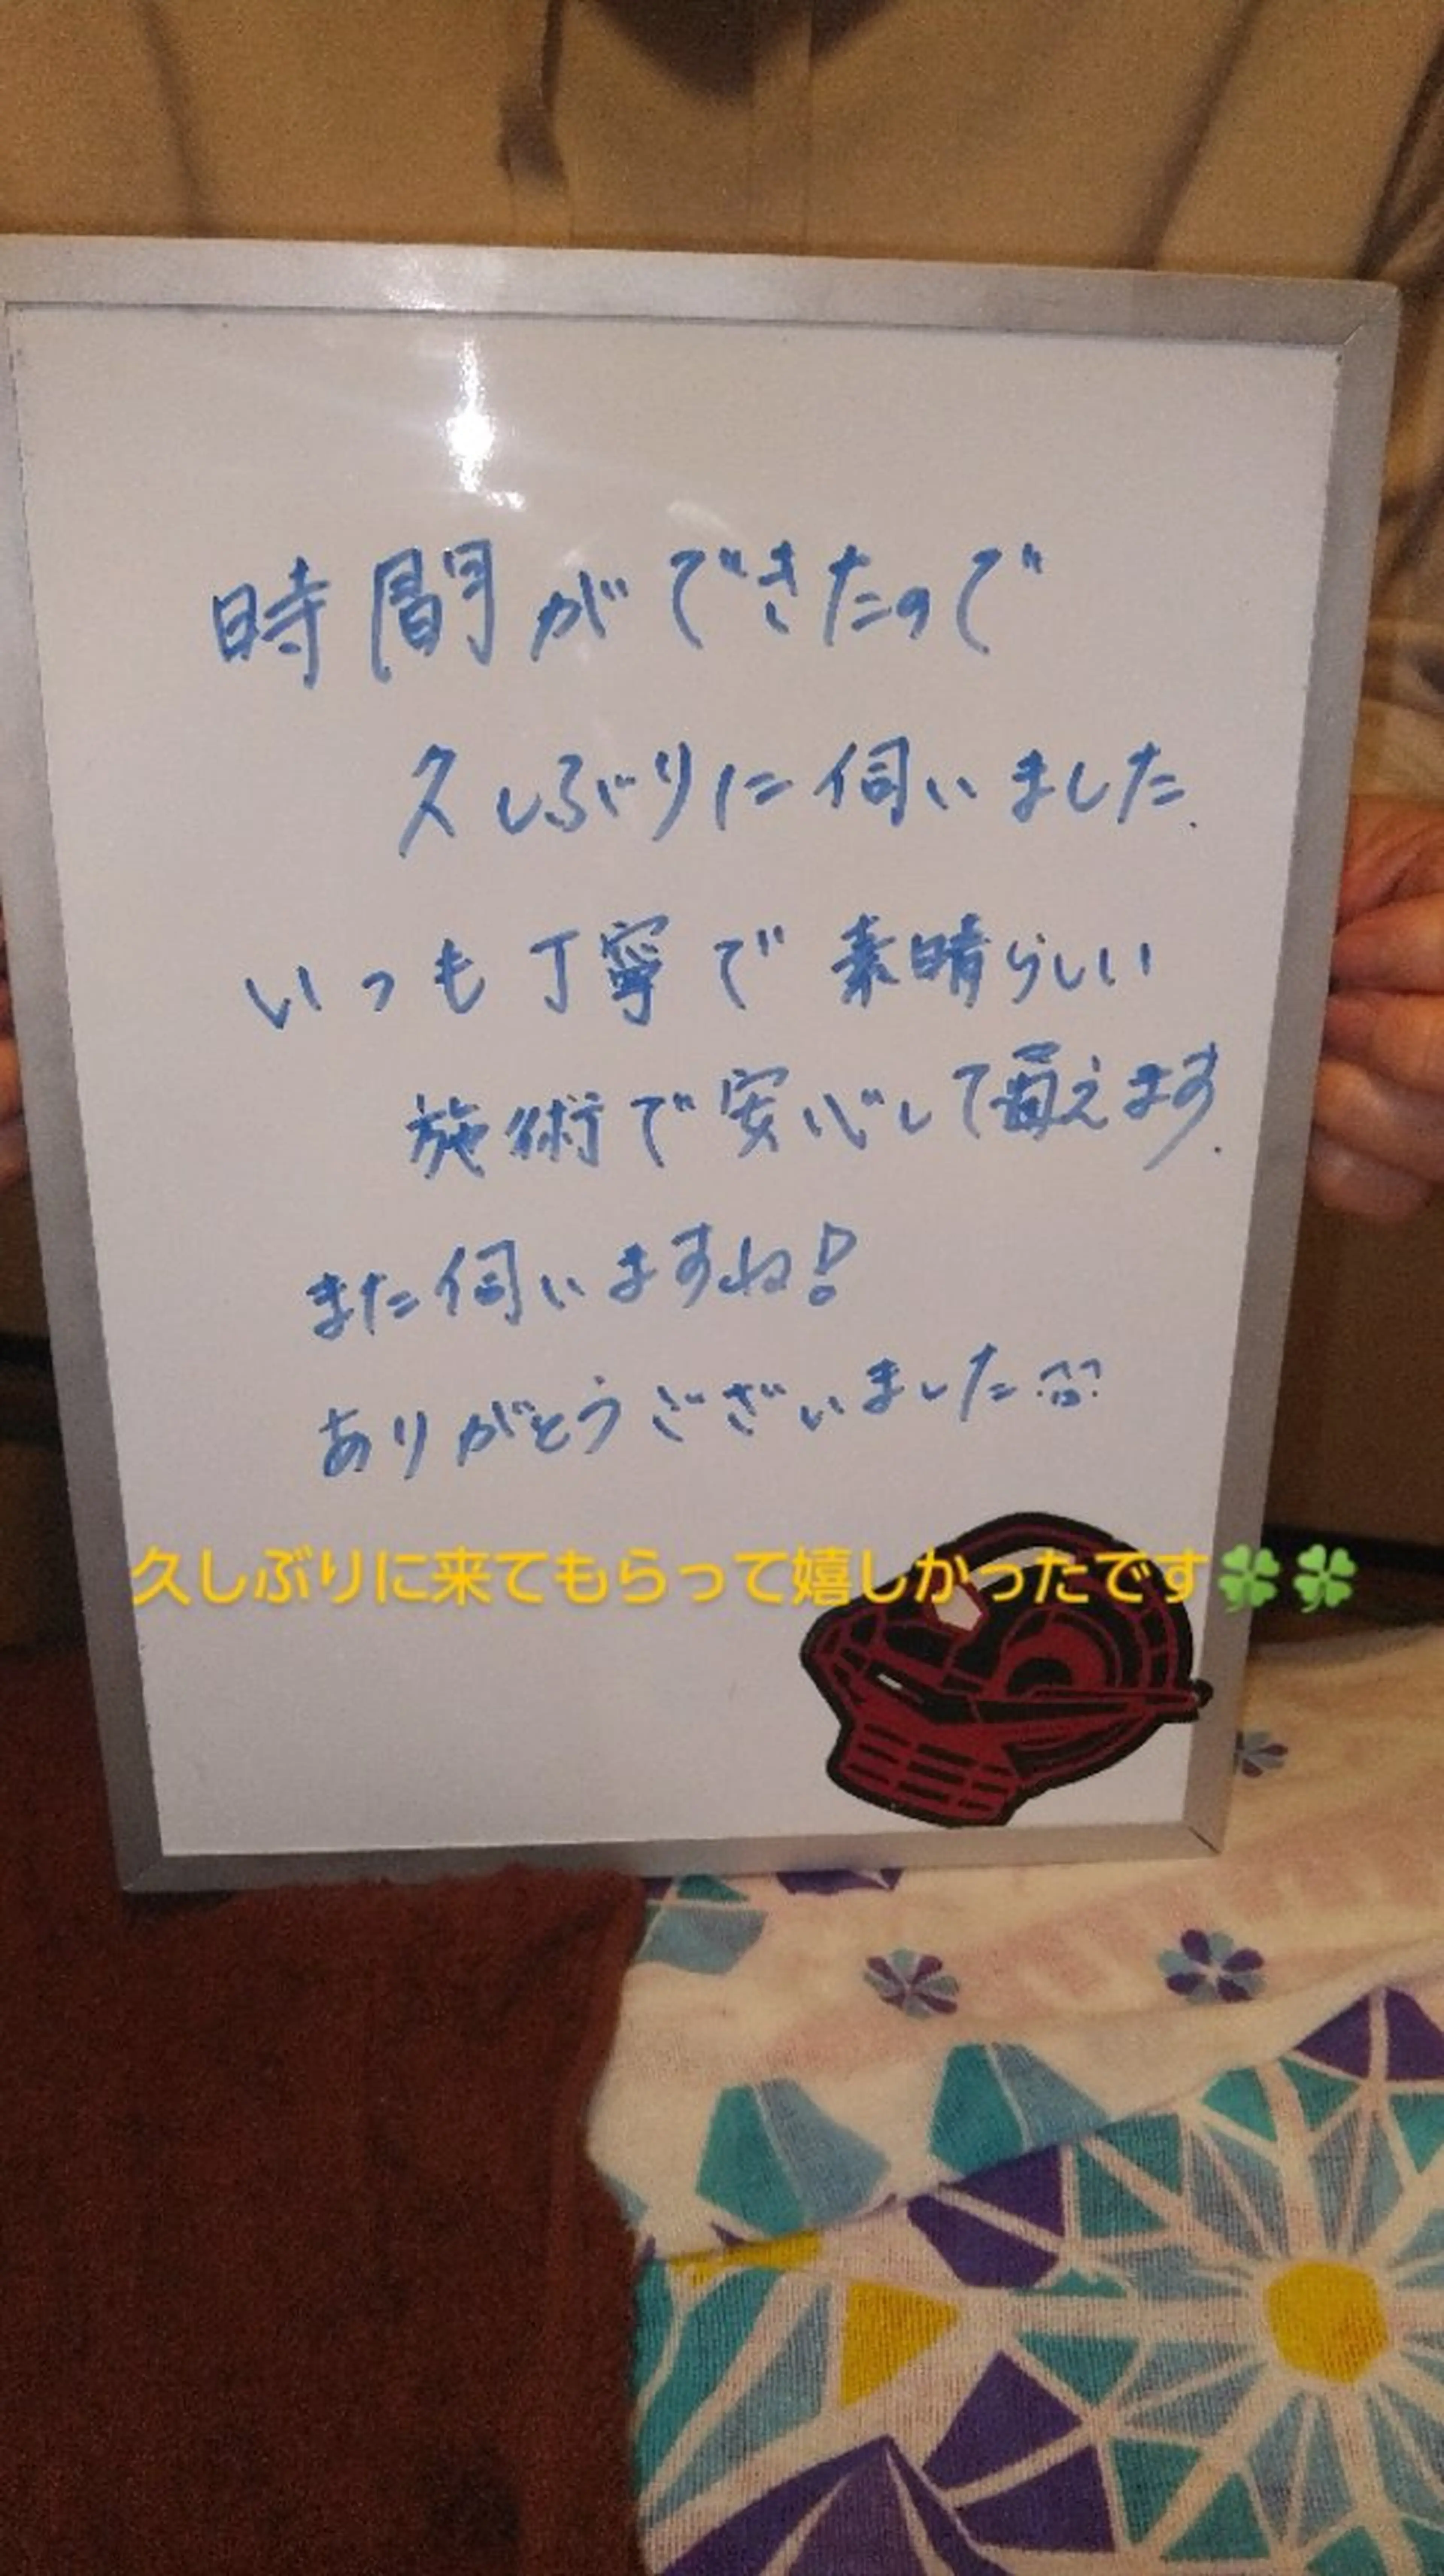 時間ができたので
久しぶりに伺いました.
いつも丁寧で素晴らしい
施術で安心して貰えます.
また伺いますね!
ありがとうございました
久しぶりに来てもらって嬉しかったです🍀🍀